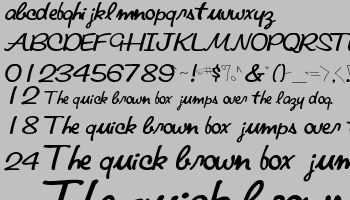 abcdefghijklmnopqrstuvwxyz
ABCDEFGHIJKLMNOPQRST
0123456789
12 The quick brown box jumps over the lazy dog.
18 The quick brown box jumps over
24 The quick brown box jum
The quick brown